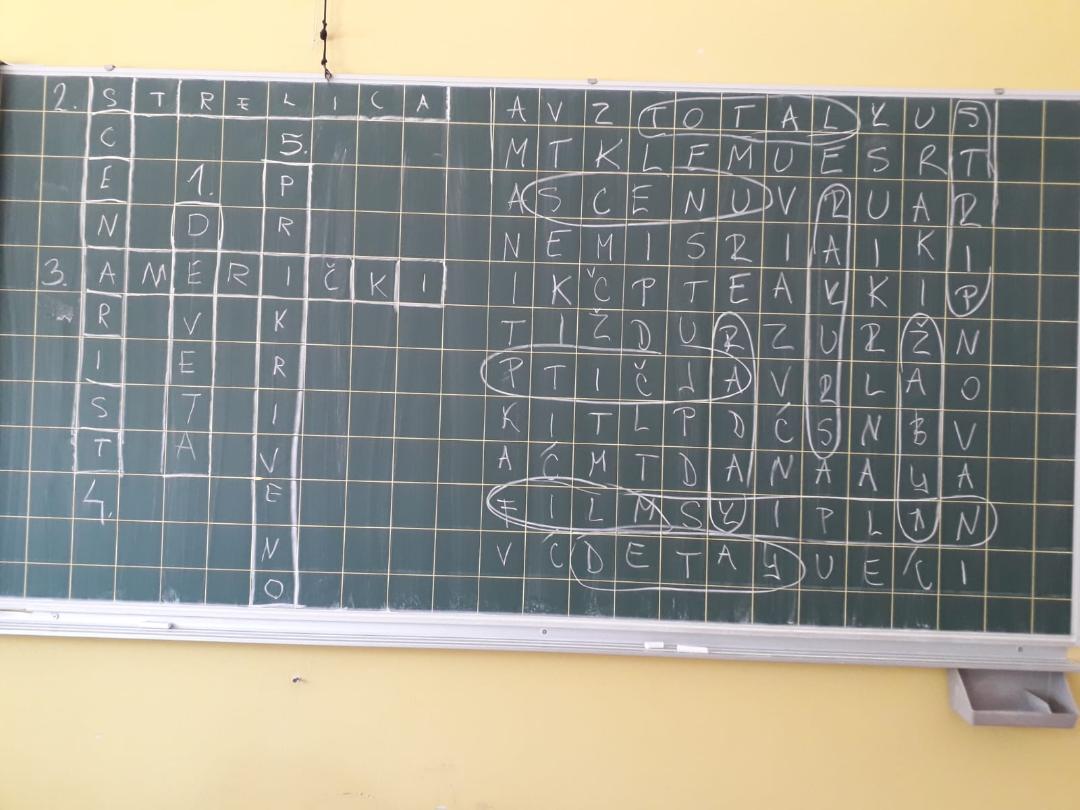 2. S T R E L I C A
C 5.
E 1. P
N D R
3. A M E R I Č K I
R V K
I E R
S T I
T A V
4. E
N
O
A V Z T O T A L K U S
M T K L E M U E S R T
A S C E N U V R U A R
N E M I S R I A I K I
I K Č P T E A K K I P
T I Ž D U R Z U R Ž N
P T I Č J A V R L A O
K I T L P D Ć S N B V
A Ć M T D A N A A LJ A
F I L M S K I P L A N
V Ć D E T A LJ U E Ć I